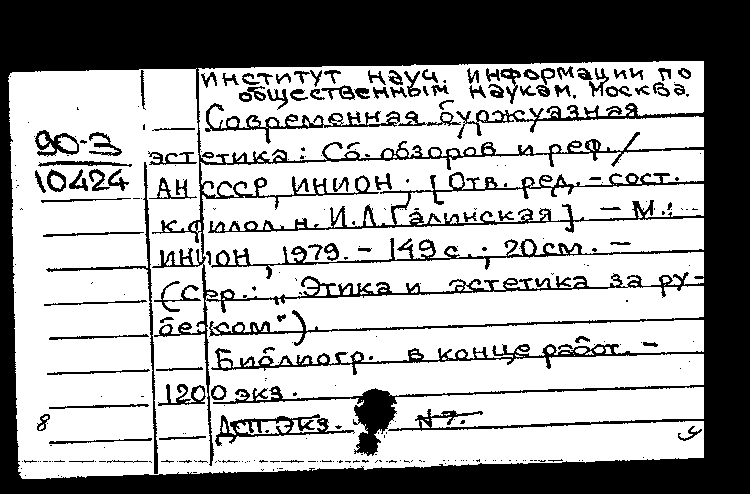 институт науч. информации по
общественным наукам. Москва.
Современная буржуазная
90-3
10424
эстетика: Сб. обзоров и реф. /
АН СССР, ИНИОН; [Отв. ред.-сост.
к.филол.н. И.Л.Галинская]. - М.:
ИНИОН, 1979. - 149 с.; 20см. -
(Сер.: „Этика и эстетика за ру-
бежом").
Библиогр. в конце работ. -
1200 экз.
8
Дсп. Экз. N 7.